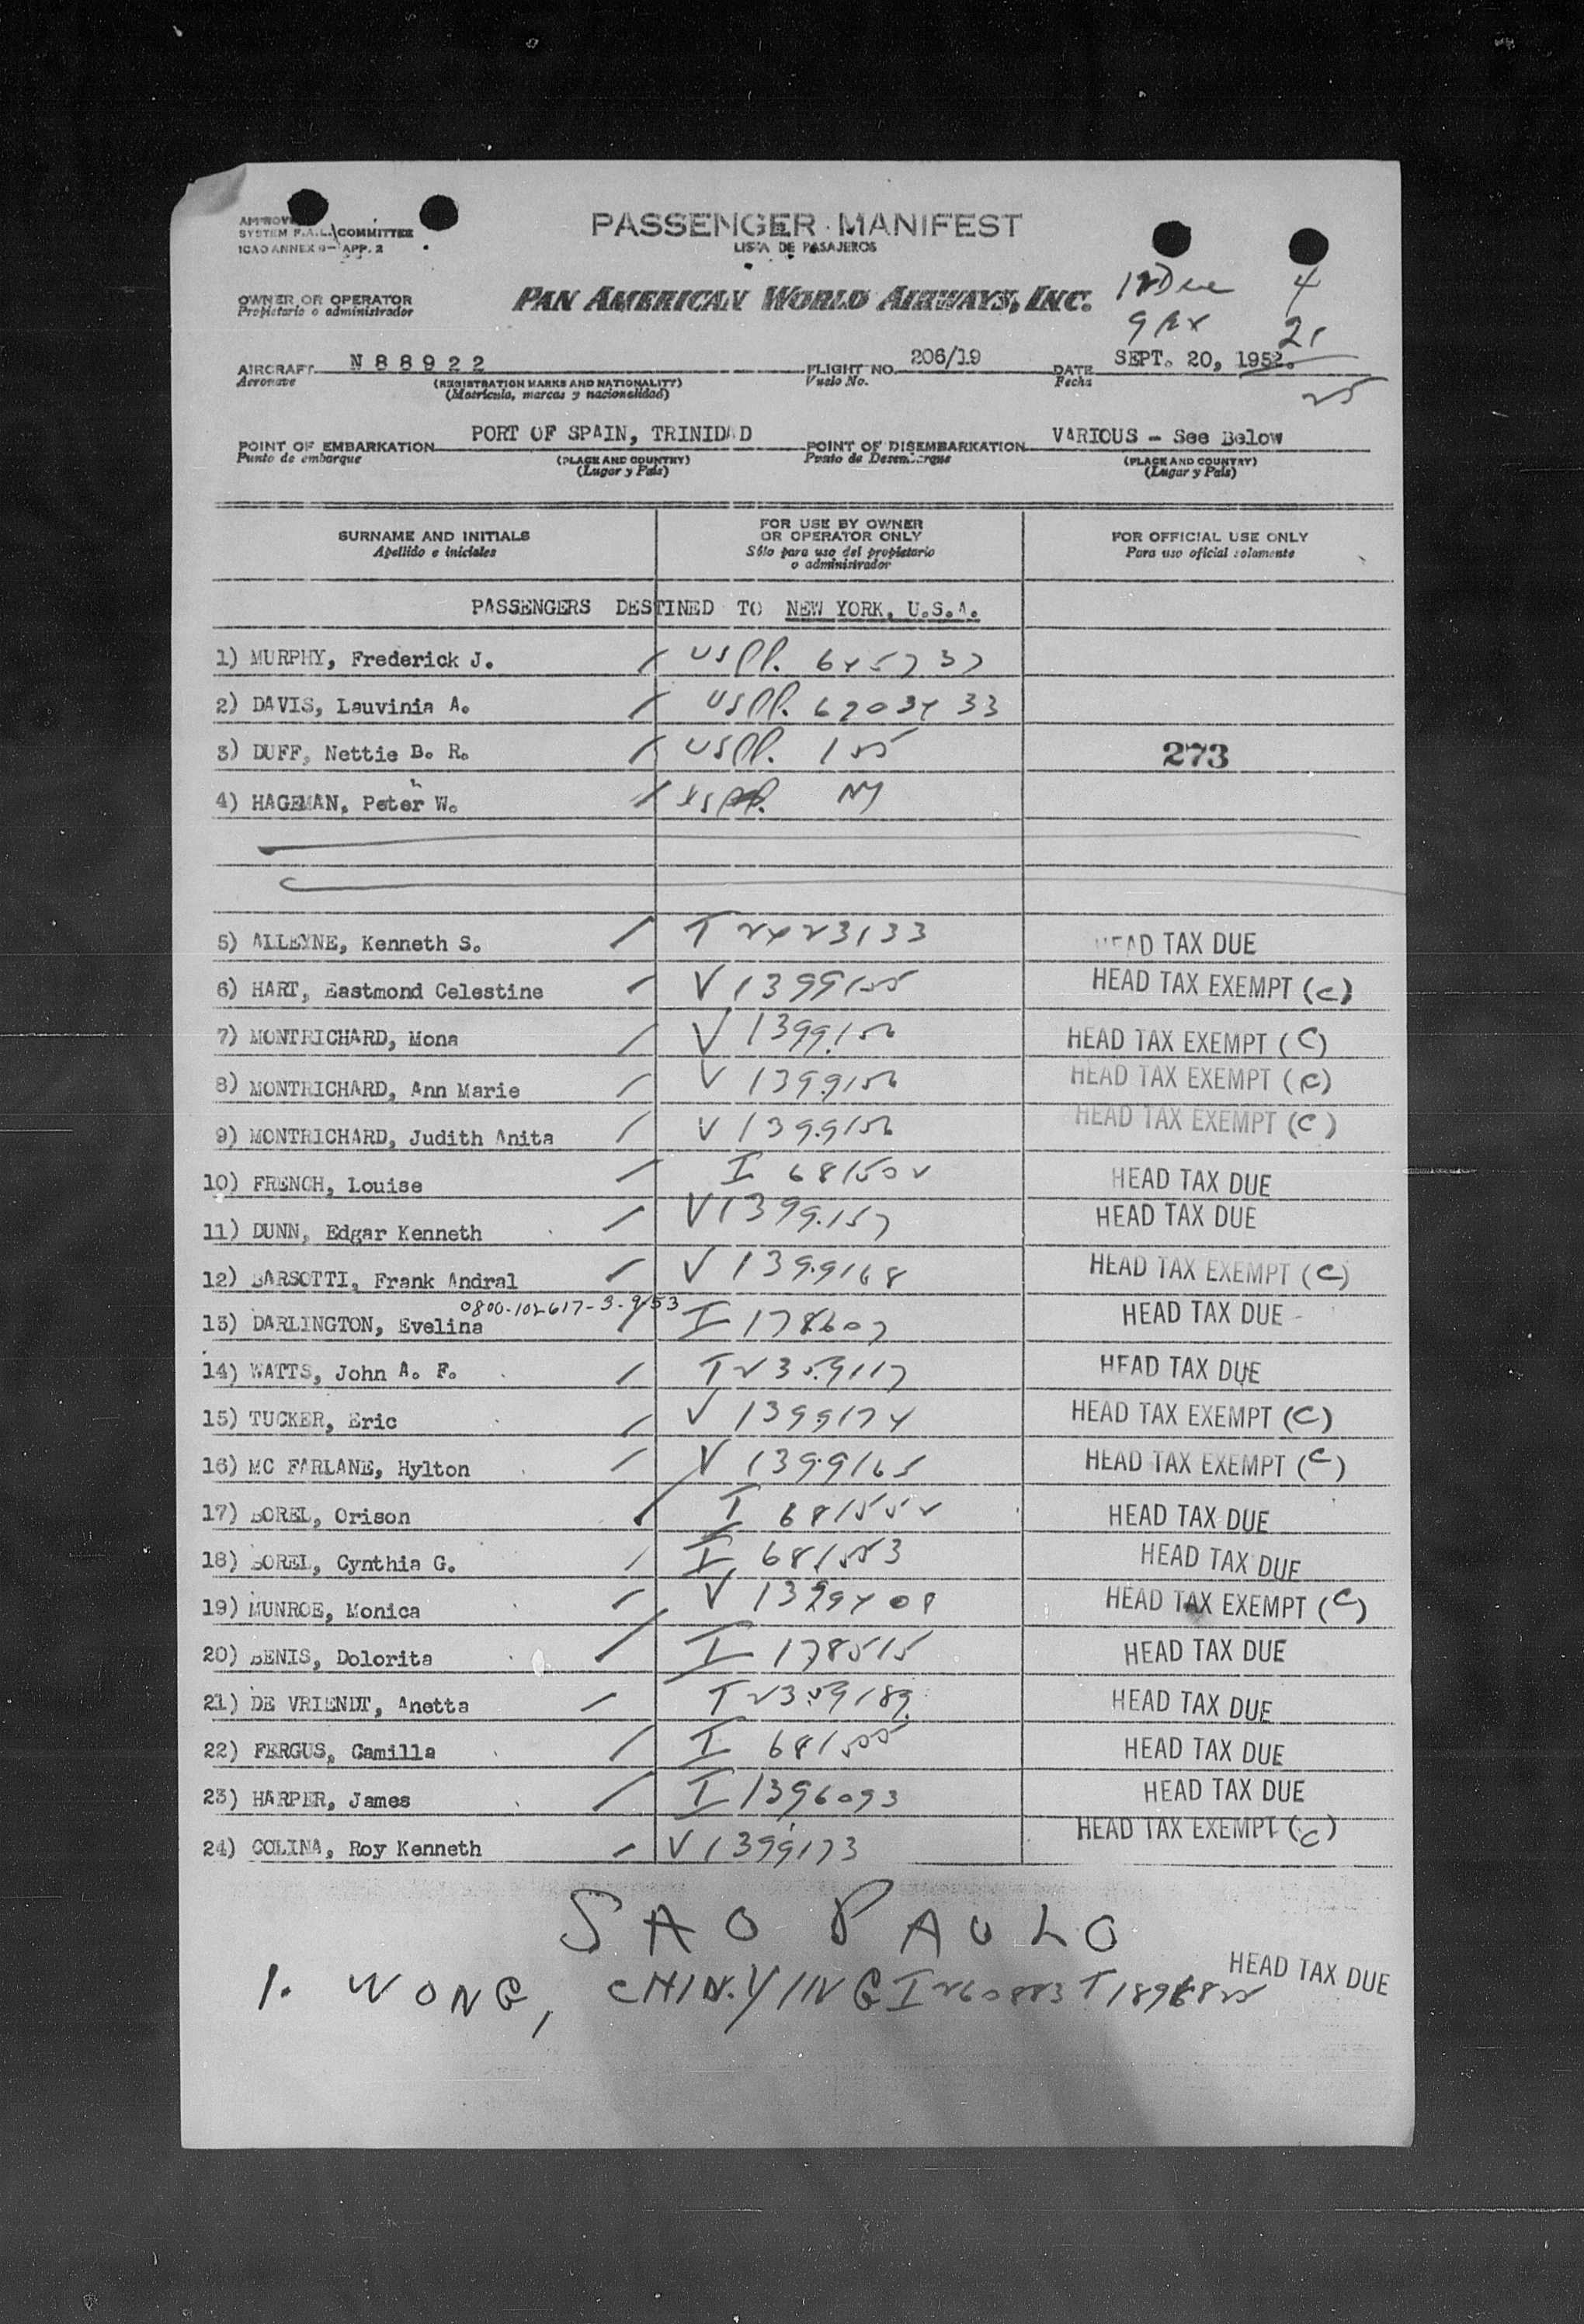 APPROVED
SYSTEM F.A.L. COMMITTEE
ICAO ANNEX 9- APP. 2
PASSENGER MANIFEST
LISTA DE PASAJEROS
OWNER OR OPERATOR
Propietario o administrador
PAN AMERICAN WORLD AIRWAYS, INC.
12 Due 4
9 Ex 21
25
AIRCRAFT N 8 8 9 2 2 FLIGHT NO. 206/19 DATE SEPT. 20, 1952.
Aeronave (REGISTRATION MARKS AND NATIONALITY) Vuelo No. Fecha
(Matricula, marcas y nacionalidad)
POINT OF EMBARKATION PORT OF SPAIN, TRINIDAD POINT OF DISEMBARKATION VARIOUS - See Below
Punto de embarque (PLACE AND COUNTRY) Punto de Desembarque (PLACE AND COUNTRY)
(Lugar y País) (Lugar y País)
SURNAME AND INITIALS FOR USE BY OWNER OR OPERATOR ONLY FOR OFFICIAL USE ONLY
Apellido e iniciales Sólo para uso del propietario o administrador Para uso oficial solamente
PASSENGERS DESTINED TO NEW YORK, U.S.A.
1) MURPHY, Frederick J. / USPP. 645737
2) DAVIS, Lauvinia A. / USPP.
3) DUFF, Nettie B. R. / USPP. 155 273
4) HAGEMAN, Peter W. / USPP. NY
5) ALLEYNE, Kenneth S. / T 2423133 HEAD TAX DUE
6) HART, Eastmond Celestine / V 1399155 HEAD TAX EXEMPT (C)
7) MONTRICHARD, Mona / V 1399156 HEAD TAX EXEMPT (C)
8) MONTRICHARD, Ann Marie / V 1399156 HEAD TAX EXEMPT (C)
9) MONTRICHARD, Judith Anita / V 1399156 HEAD TAX EXEMPT (C)
10) FRENCH, Louise / I 681502 HEAD TAX DUE
11) DUNN, Edgar Kenneth / V 1399157 HEAD TAX DUE
12) BARSOTTI, Frank Andral / V 1399168 HEAD TAX EXEMPT (C)
0800-102617-3-9/53
13) DARLINGTON, Evelina / I 178607 HEAD TAX DUE
14) WATTS, John A. F. / T 2359117 HEAD TAX DUE
15) TUCKER, Eric / V 1399174 HEAD TAX EXEMPT (C)
16) MC FARLANE, Hylton / V 1399165 HEAD TAX EXEMPT (C)
17) BOREL, Orison / I 681552 HEAD TAX DUE
18) BOREL, Cynthia G. / I 681553 HEAD TAX DUE
19) MUNROE, Monica / V 1399408 HEAD TAX EXEMPT (C)
20) BENIS, Dolorita / I 178515 HEAD TAX DUE
21) DE VRIENDT, Anetta / T 2359189 HEAD TAX DUE
22) FERGUS, Camilla / I 681555 HEAD TAX DUE
23) HARPER, James / I 1396093 HEAD TAX DUE
24) COLINA, Roy Kenneth / V 1399173 HEAD TAX EXEMPT (C)
SAO PAULO
1. WONG, CHIN.YING I 260883 HEAD TAX DUE